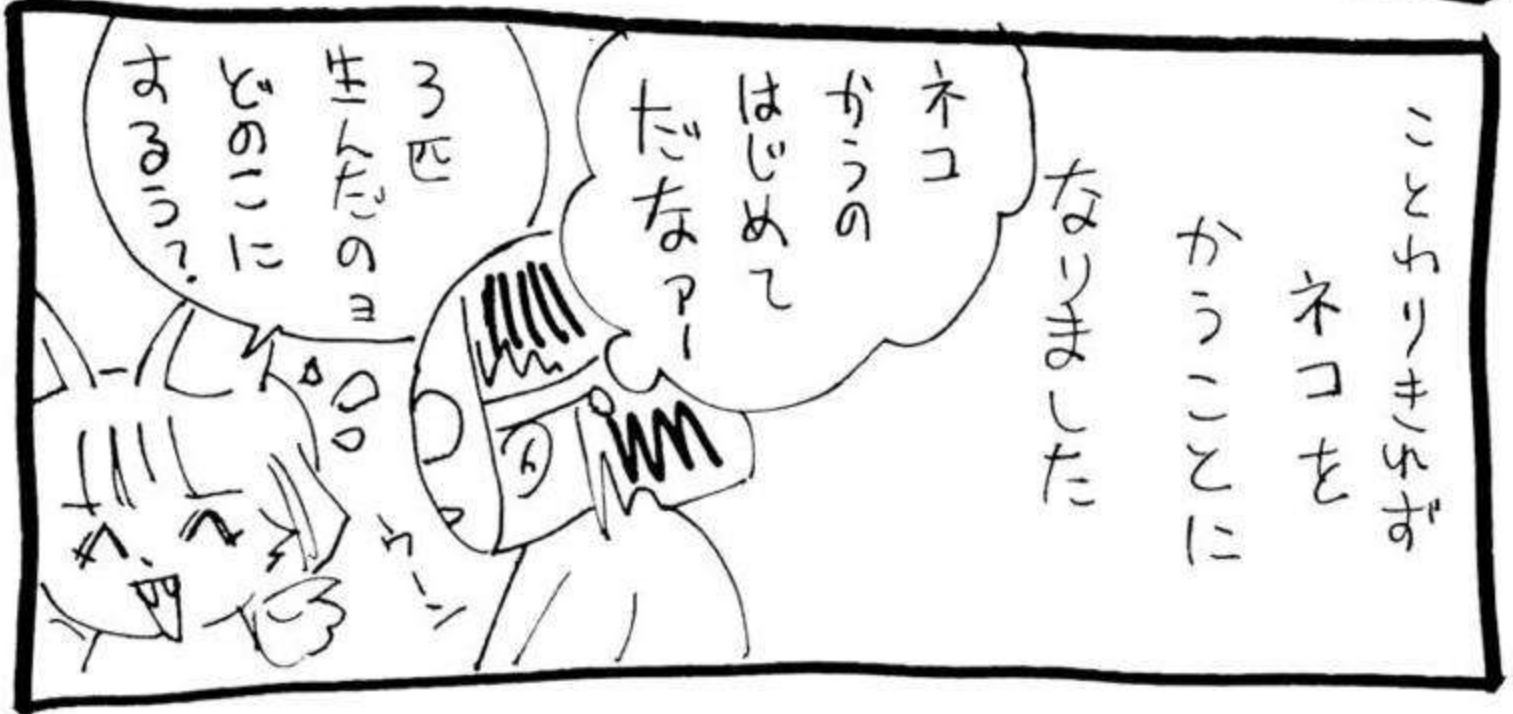 ことわりきれず
ネコを
かうことに
なりました
ネコ
かうの
はじめて
だなァー
3匹
生んだのョ
どのこに
するぅ?
ウーン